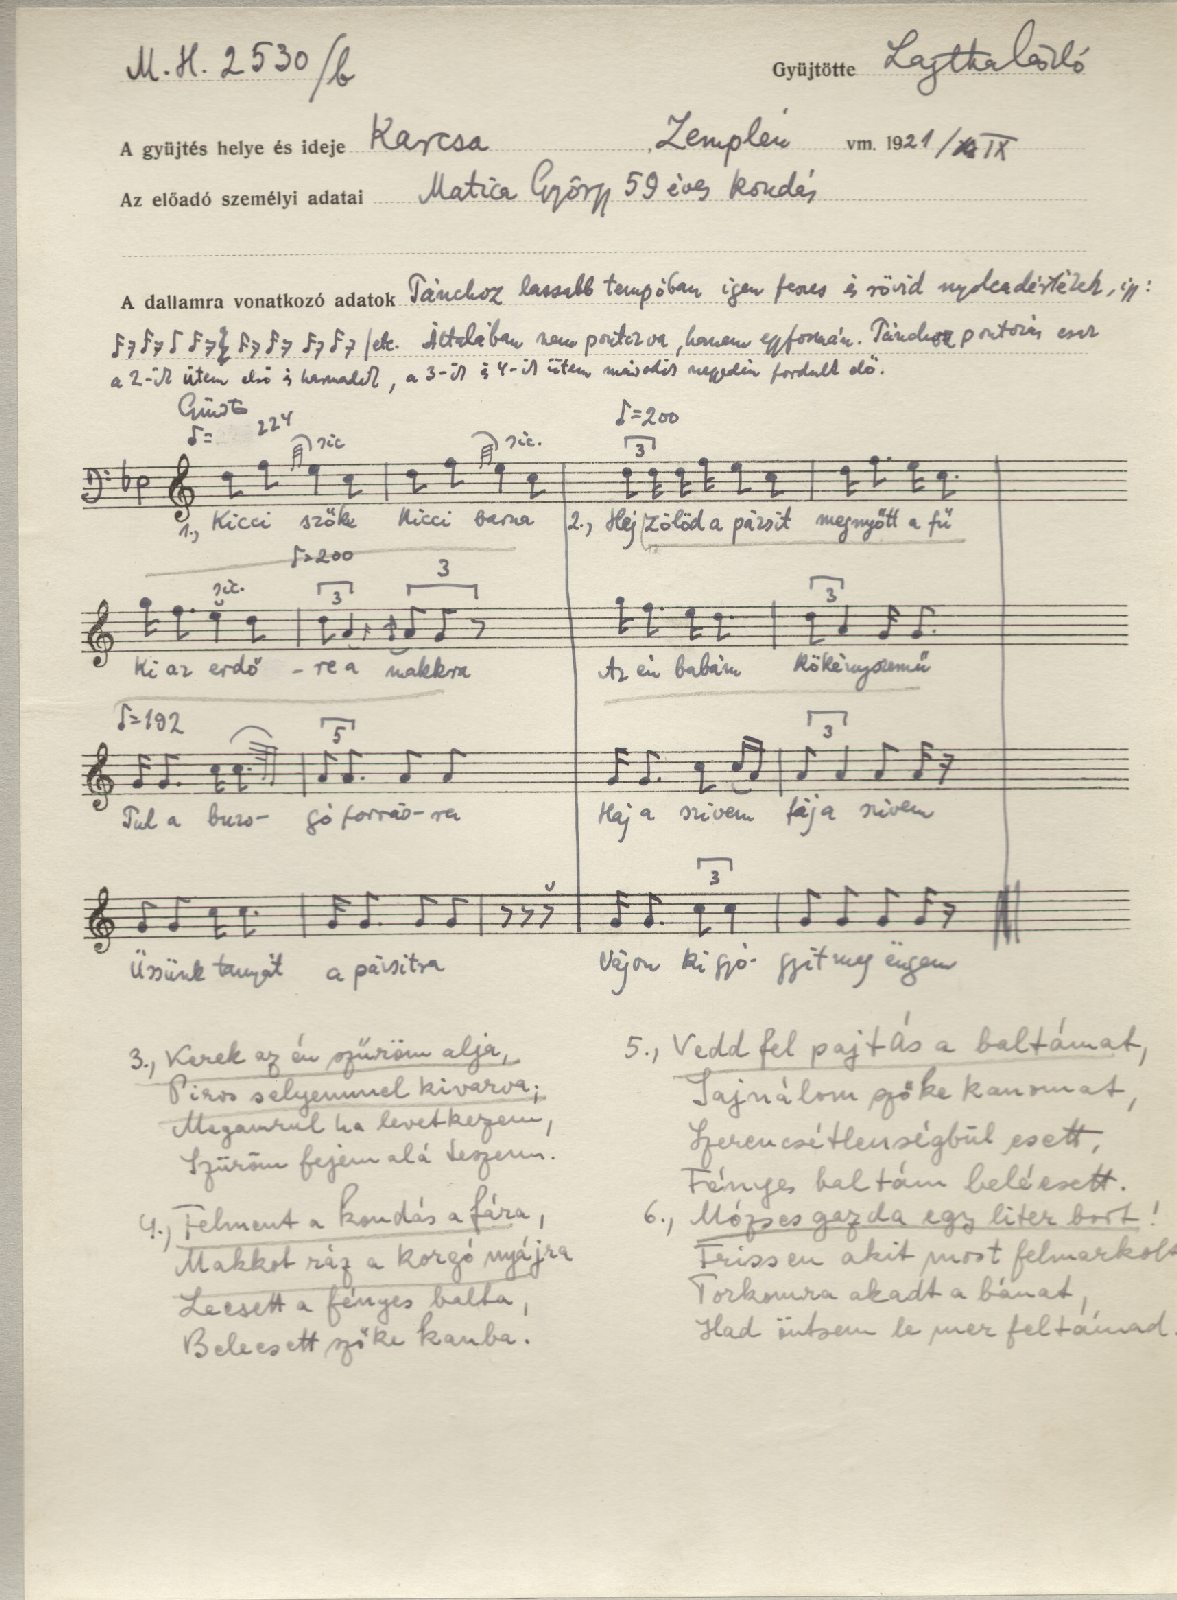 M. H. 2530/b
Gyüjtötte Lajtha László
A gyüjtés helye és ideje Karcsa, Zemplén vm. 1921/IX
Az előadó személyi adatai Matica György 59 éves kondás
A dallamra vonatkozó adatok Tánchoz lassabb tempóban igen feszes és rövid nyolcadértékek, így:
/etc. Általában nem pontozva, hanem egyformán. Tánchoz pontozás csak
a 2-ik ütem első és harmadik, a 3-ik és 4-ik ütem második negyedén fordult elő.
Giusto
♪= 224 sic sic. ♪=200
3
1., Kicci szőke Kicci barna 2., Hej Zölöd a pázsit megnyőtt a fű
♪=200
sic. 3 3 3
Ki az erdő - re a makkra Az én babám kökényszemű
♪=192
5 3
Tul a buzo- gó forrás-ra Haj a szivem fáj a szivem
3
Üssünk tanyát a pázsitra Vajon ki gyó- gyit meg éngem
3., Kerek az én szűröm alja,
Piros selyemmel kivarva;
Magamrul ha levetkezem,
Szűröm fejem alá teszem.
4., Felment a kondás a fára,
Makkot ráz a korgó nyájra
Leesett a fényes balta,
Beleesett szőke kanba.
5., Vedd fel pajtás a baltámat,
Sajnálom szőke kanomat,
Szerencsétlenségbül esett,
Fényes baltám beléesett.
6., Mózses gazda egy liter bort!
Frissen akit most felmarkolt
Torkomra akadt a bánat,
Had öntsem le mer feltámad.